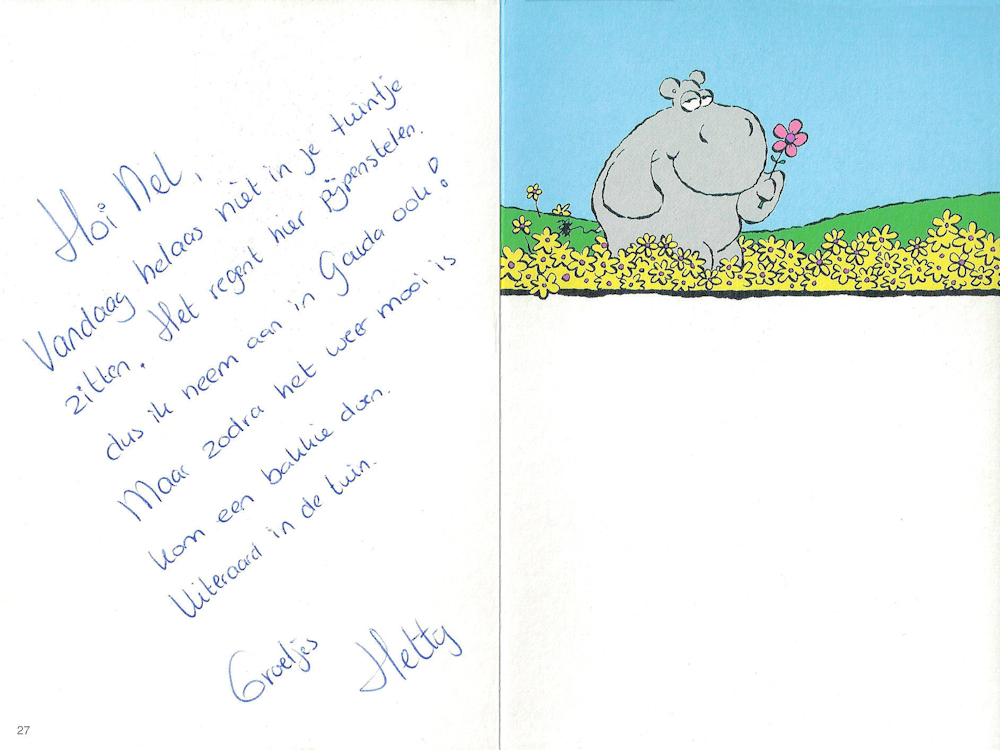 Hoi Nel,
Vandaag helaas niet in je tuintje
zitten. Het regent hier pijpenstelen.
dus ik neem aan in Gouda ook!
Maar zodra het weer mooi is
kom een bakkie doen.
Uiteraard in de tuin.
Groetjes Hetty
27